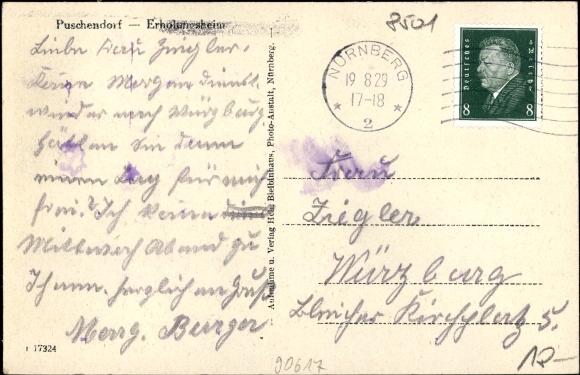 Puschendorf — Erholungsheim
8501
Liebe Frau Ziegler.
Morgen
wieder nach Würzburg.
Hätten Sie dann
einen Tag für mich
frei? Ich
Mittwoch Abend zu
Ihnen. herzlichen Gruß
Marg. Burger
r 17324
Aufnahme u. Verlag Bleibinhaus, Photo-Anstalt, Nürnberg.
NÜRNBERG
19 8 29
17-18
* 2 *
Deutsches Reich
8 8
Frau
Ziegler
Würzburg
Bleicher Kirchplatz 5.
12.-
90617